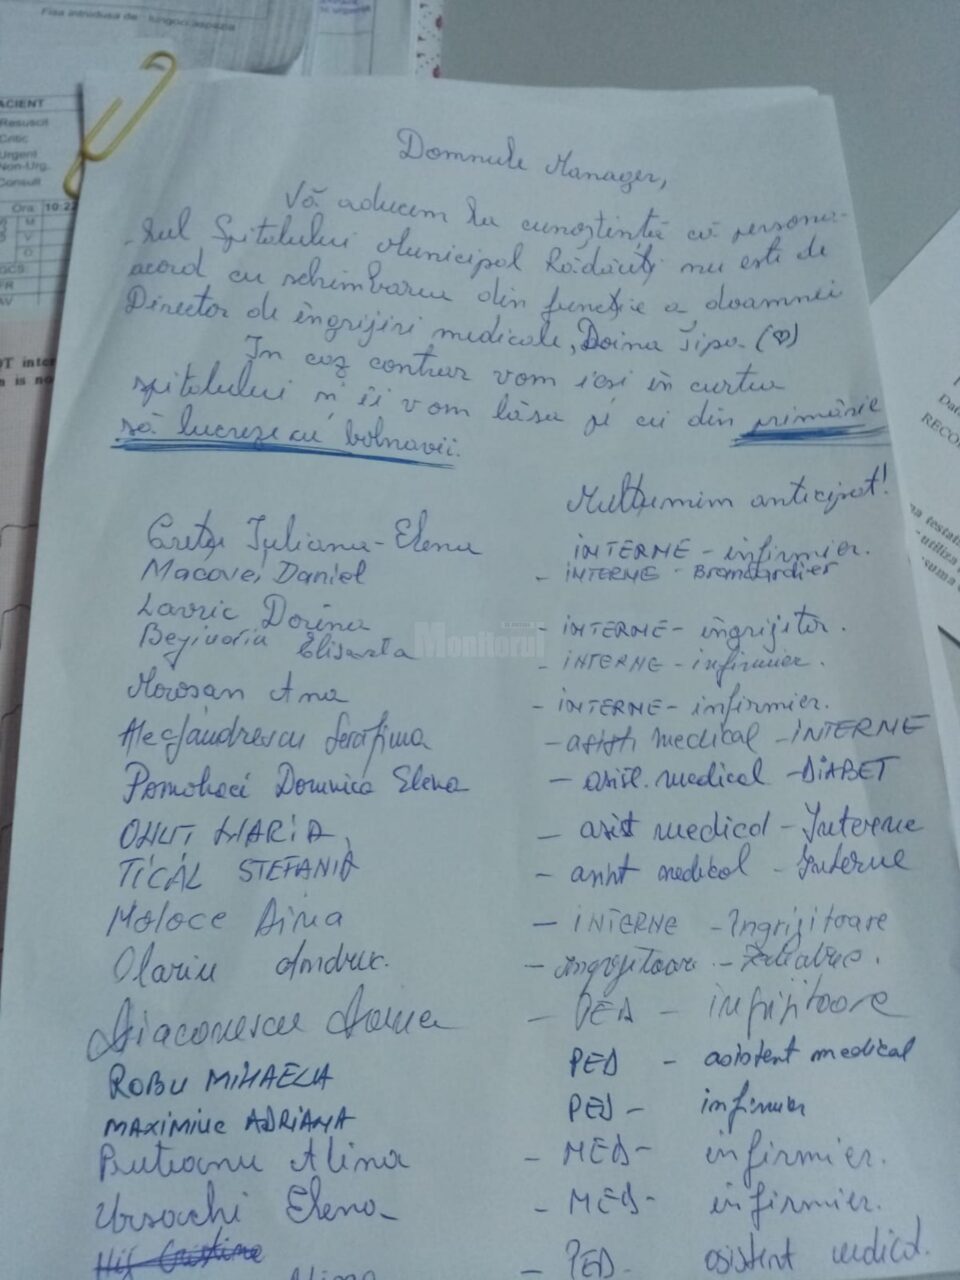 Fisa introdusa de
ACIENT
Resuscit
Critic
Urgent
Non-Urg.
Consult
Ora: 10:22
M
V
O
GCS
FR
AV
Domnule Manager,
Vă aducem la cunoștință că persona-
-lul Spitalului Municipal Rădăuți nu este de
acord cu schimbarea din funcție a doamnei
Director de îngrijiri medicale, Doina Țipa. (♡)
În caz contrar vom ieși în curtea
spitalului și îi vom lăsa și cei din primărie
să lucreze cu bolnavii.
Mulțumim anticipat!
Crețu Iuliana-Elena INTERNE - infirmier.
Macovei Daniel - INTERNE - Brancardier
Lavric Dorina - INTERNE - îngrijitor.
Elisabeta - INTERNE - infirmier.
Morosan Ana - INTERNE - infirmier.
Alexandrescu Serafima - asist. medical - INTERNE
Pomohaci Domnica Elena - asist. medical - DIABET
ONUT MARIA - asist medical - Interne
TICAL STEFANIA - asist medical - Interne
Moloce Aina - INTERNE - Îngrijitoare
Olariu - îngrijitoare - Pediatrie.
Diaconescu Doina - PED - îngrijitoare
ROBU MIHAELA PED - asistent medical
MAXIMIUC ADRIANA PED - infirmier
Puteanu Alina - MED - infirmier.
Ursachi Elena - MED - infirmier.
Cristina - PED - asistent medical.
Monitorul
RECO